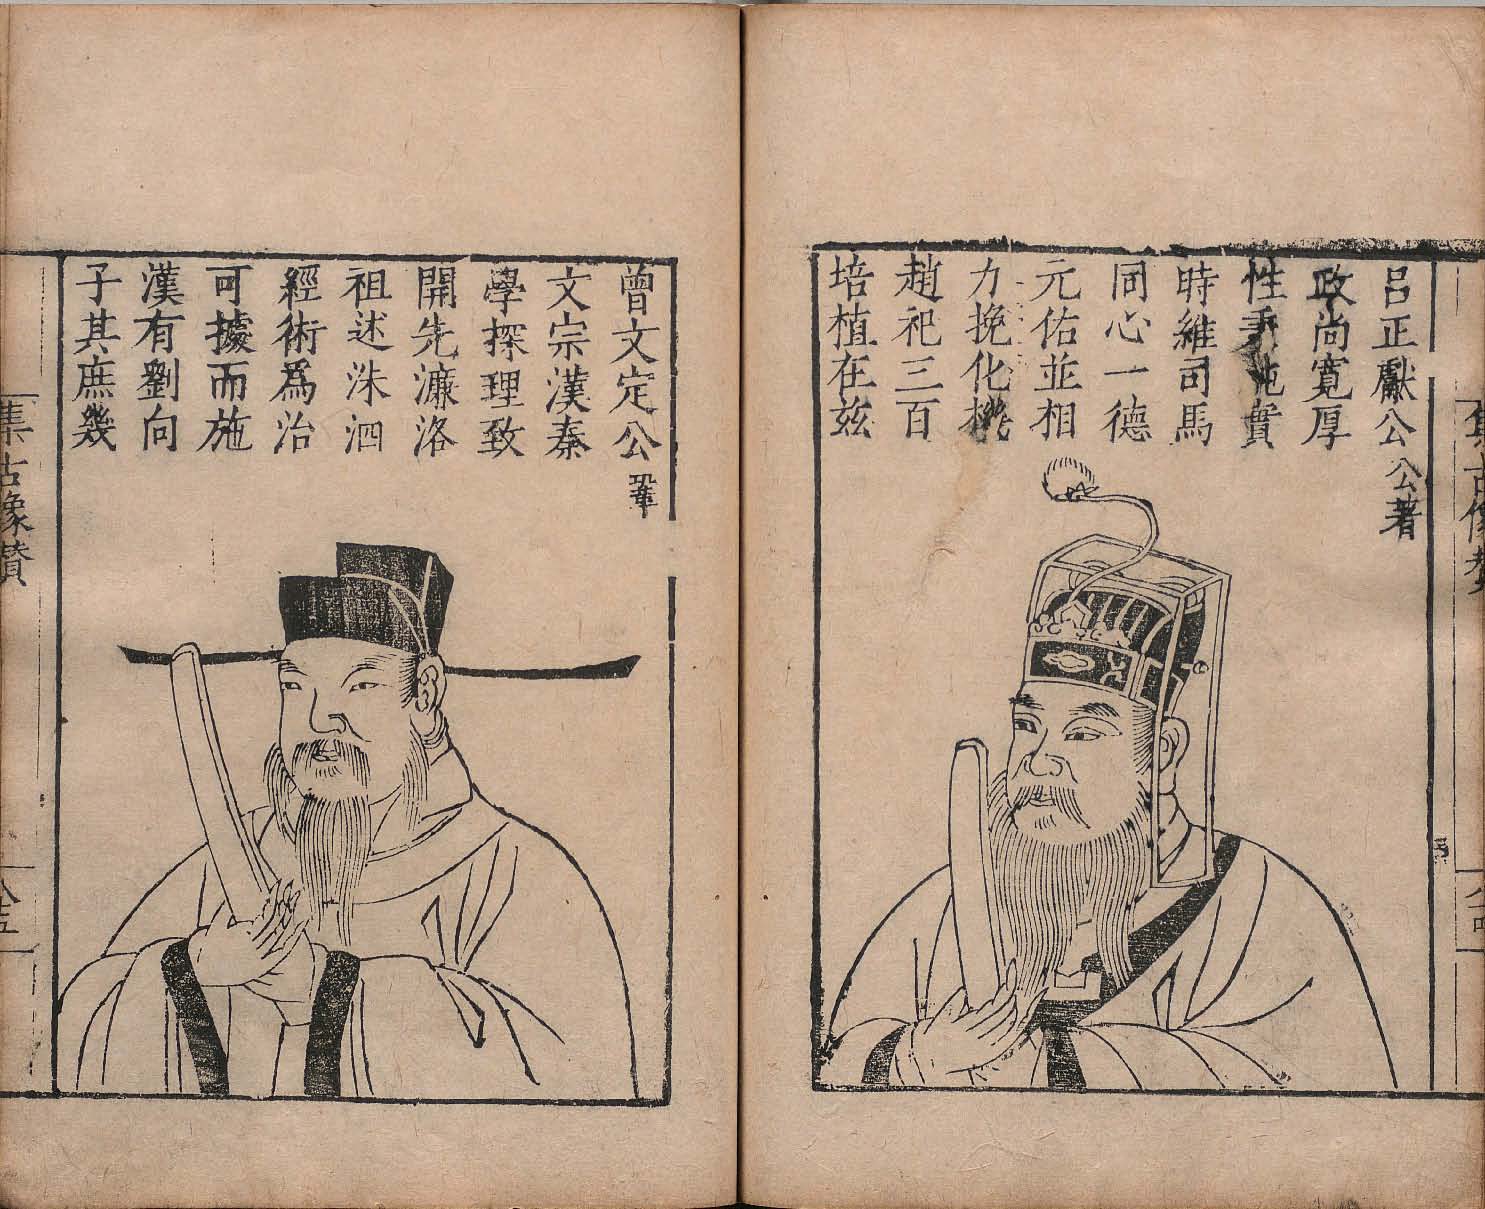 呂正獻公公著
政尚寬厚
性秉純實
時維司馬
同心一德
元佑並相
力挽化機
趙祀三百
培植在茲
曾文定公鞏
文宗漢秦
學探理致
開先濂洛
祖述洙泗
經術爲治
可據而施
漢有劉向
子其庶幾
集古像贊
八五